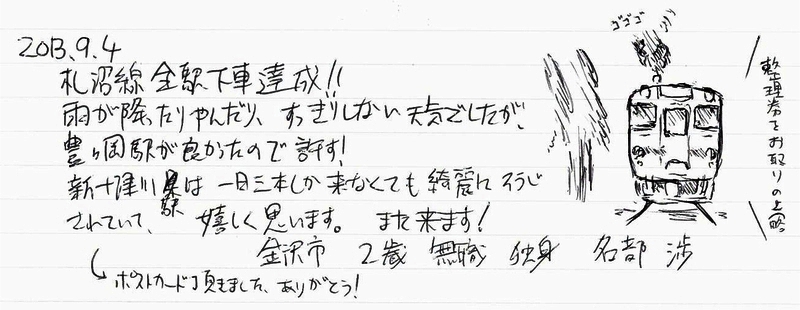 2013.9.4
札沼線 全駅下車達成!!
雨が降ったりやんだり、すっきりしない天気でしたが、
豊ヶ岡駅が良かったので許す!
新十津川駅は一日三本しか来なくても綺麗にそうじ
されていて、嬉しく思います。 また来ます!
金沢市 2歳 無職 独身 名部 渉
ポストカード頂きました、ありがとう!
ゴゴゴ
整理券をお取りの上